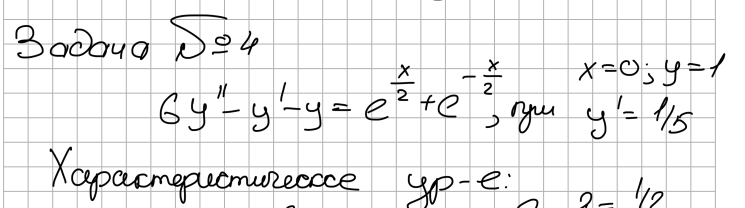 Задача №4
6y'' - y' - y = e^{x/2} + e^{-x/2}, при x=0; y=1 y' = 1/5
Характеристическое ур-е: